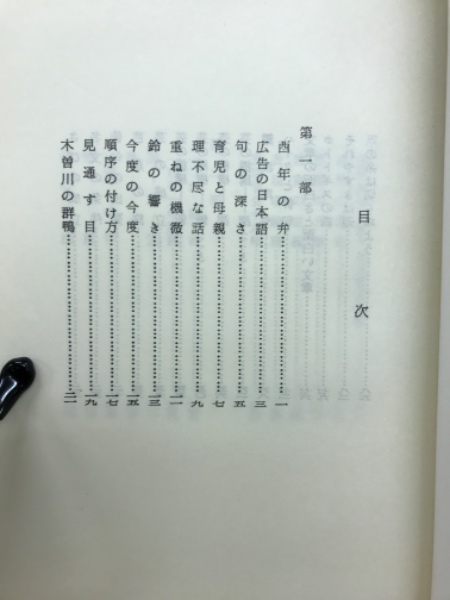 目次
第一部
酉年の弁…………一
広告の日本語…………三
句の深さ…………五
育児と母親…………七
理不尽な話…………九
重ねの機微…………一一
鈴の響き…………一三
今度の今度…………一五
順序の付け方…………一七
見通す目…………一九
木曽川の群鴨…………二一